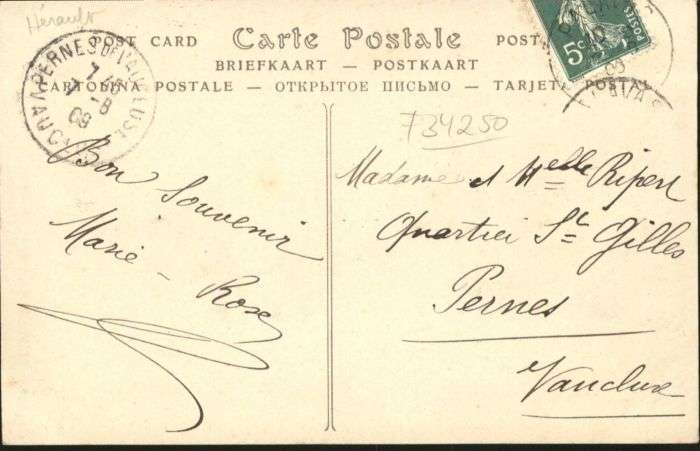 Hérault
POST CARD Carte Postale POST
BRIEFKAART — POSTKAART
CARTOLINA POSTALE — ОТКРЫТОЕ ПИСЬМО — TARJETA POSTAL
PERNES VAUCLUSE
7
8
09
5c
POSTES
PALAVAS
09
734250
Bon Souvenir
Marie - Rose
Madame et Melle Ripert
Quartier St Gilles
Pernes
Vaucluse